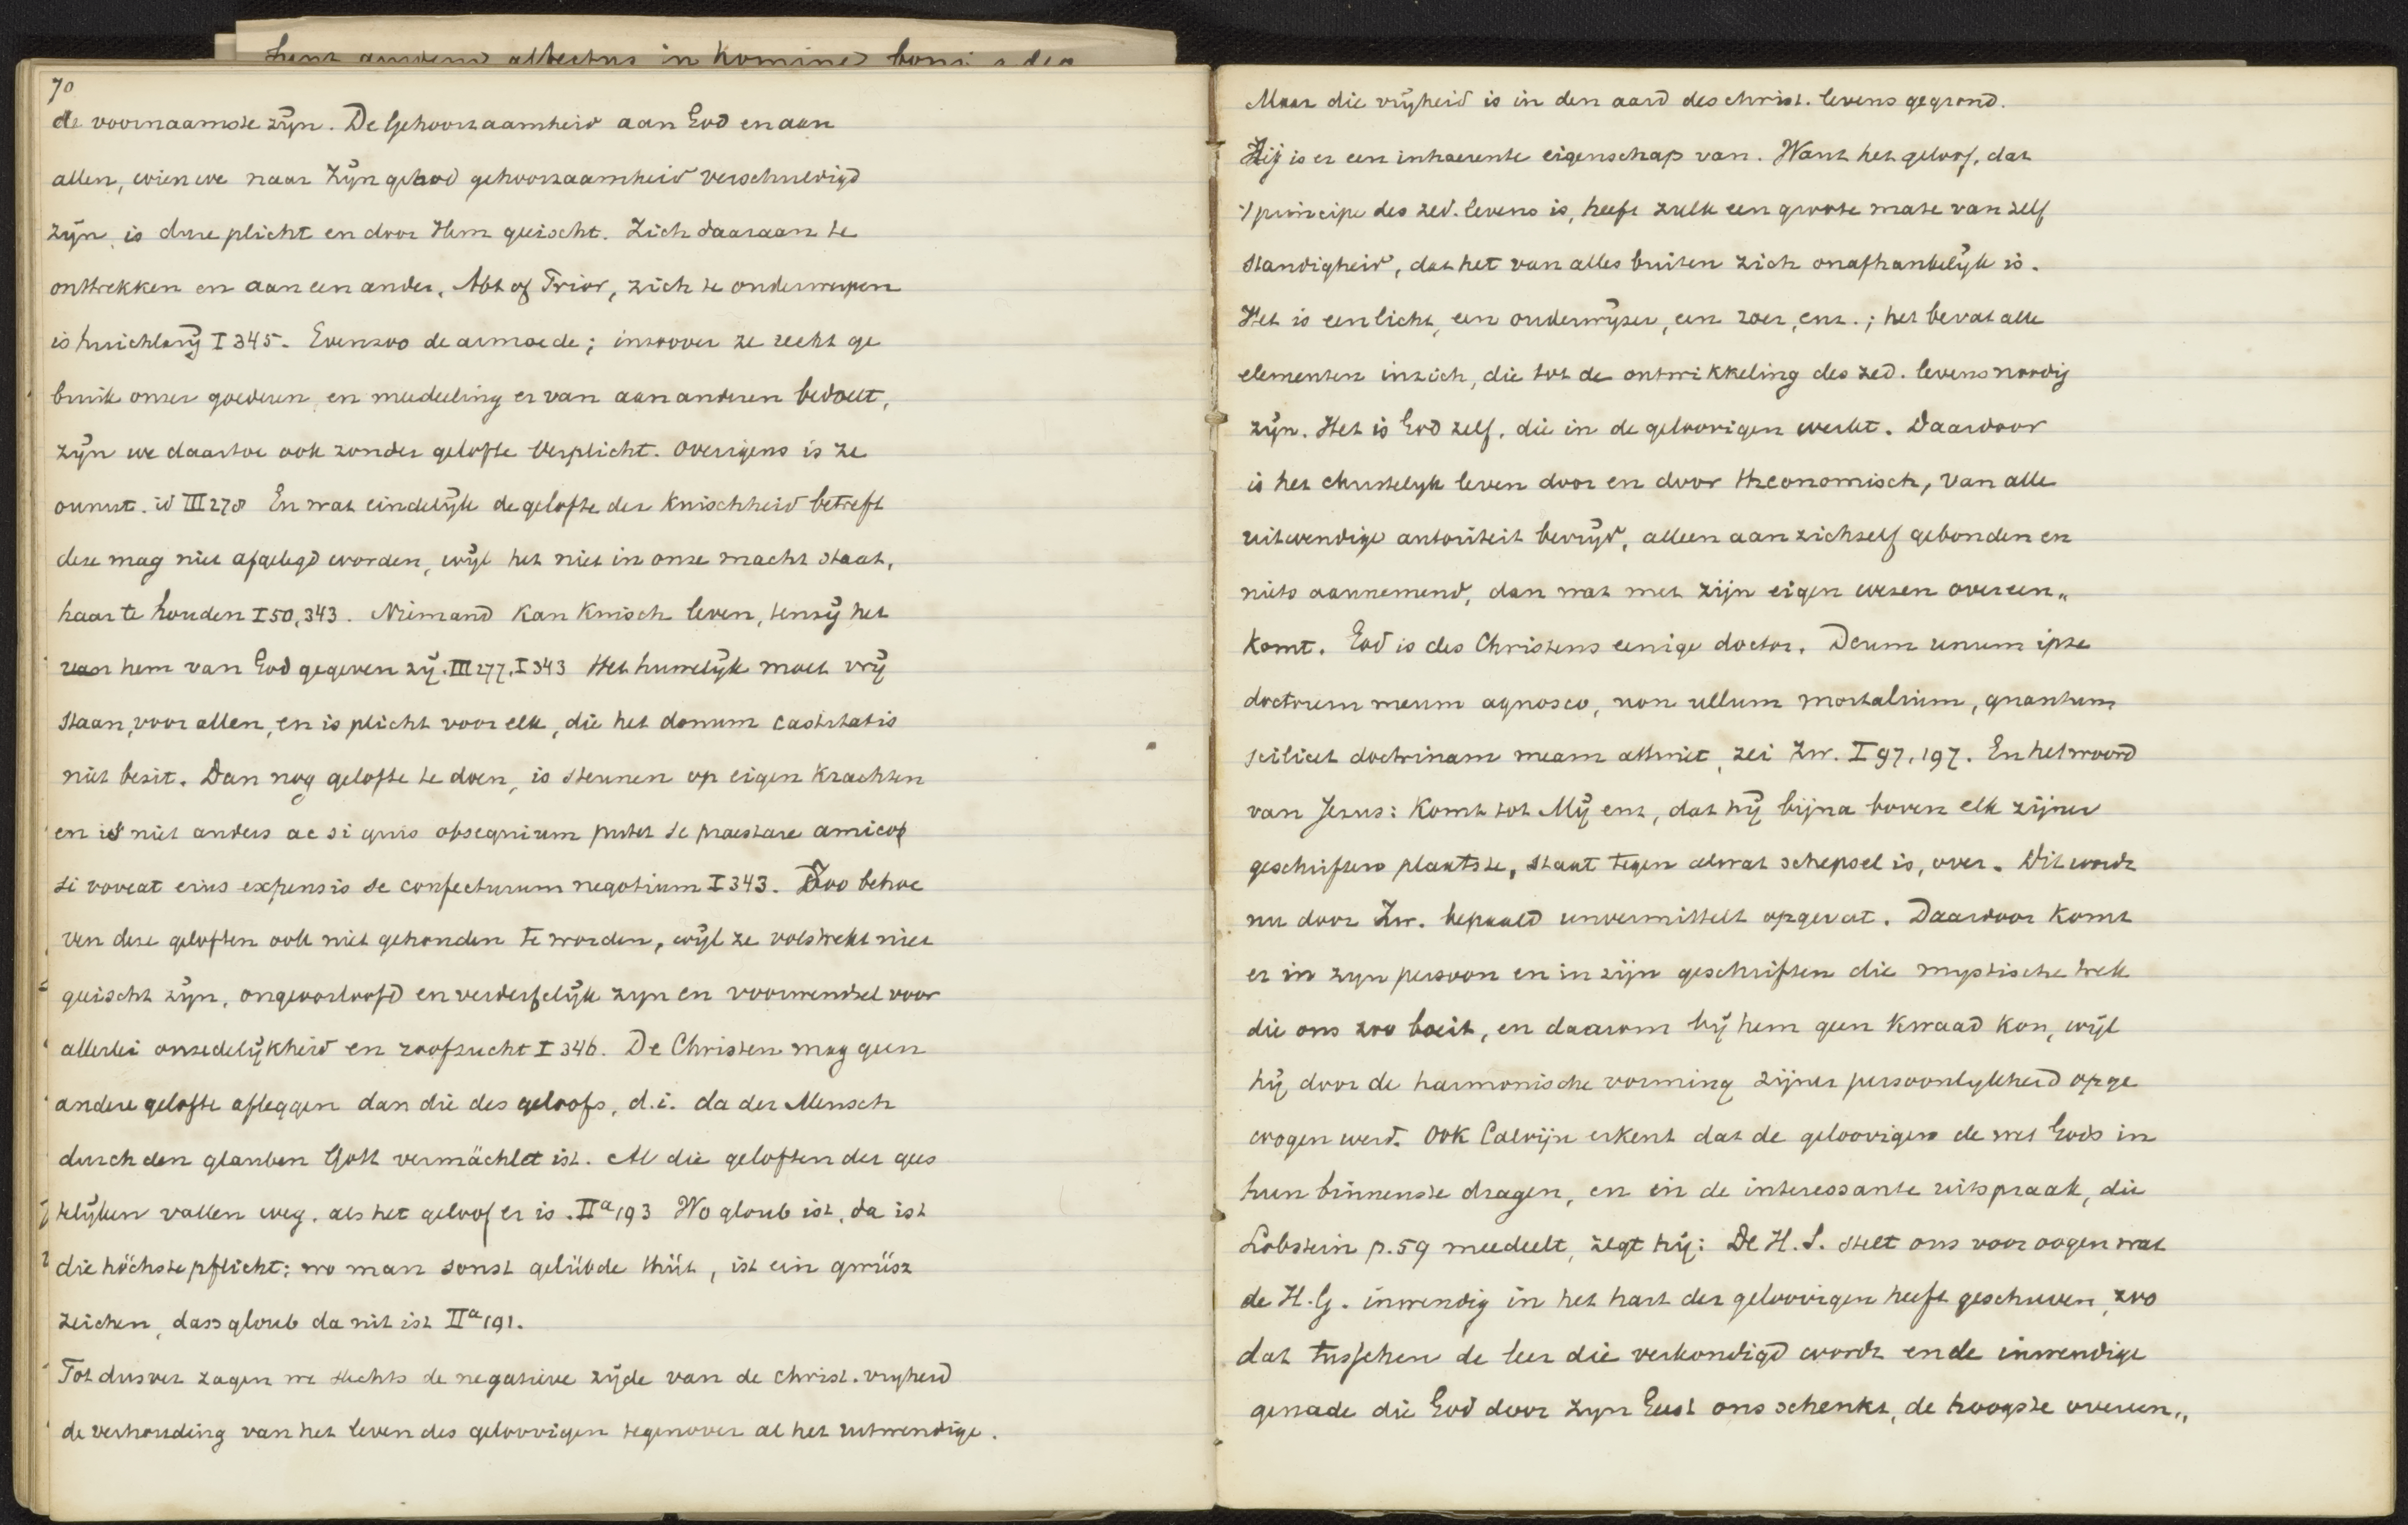 70
de voornaamste zijn. De Gehoorzaamheid aan God en aan
allen, wien we naar Zijn gebod gehoorzaamheid verschuldigd
zijn, is dure plicht en door Hem geëischt. Zich daaraan te
onttrekken en aan een ander, Abt of Prior, zich te onderwerpen
is huichlarij I 345. Evenzoo de armoede; inzoover ze recht ge
bruik onzer goederen, en meedeeling er van aan anderen bedoelt,
zijn we daartoe ook zonder gelofte verplicht. Overigens is ze
onnut. id III 278 En wat eindelijk de gelofte der Kuischheid betreft
deze mag niet afgelegd worden, wijl het niet in onze macht staat,
haar te houden I 50, 343. Niemand kan Kuisch leven, tenzij het
van hem van God gegeven zij. III 277. I 343 Het huwelijk moet vrij
staan, voor allen, en is plicht voor elk, die het donum castitatis
niet bezit. Dan nog gelofte te doen, is steunen op eigen Krachten
en is niet anders ac si quis obsequium putet se praestare amico
si voveat eius expensis se confecturum negotium I 343. Zoo behoe
ven deze geloften ook niet gehouden te worden, wijl ze volstrekt niet
geëischt zijn, ongeoorloofd en verderfelijk zijn en voorwendsel voor
allerlei onzedelijkheid en roofzucht I 346. De Christen mag geen
andere gelofte afleggen dan die des geloofs, d.i. da der Mensch
durch den glauben Gott vermächlet ist. Al die geloften der gees
telijken vallen weg, als het geloof er is. IIª 193 Wo gloub ist, da ist
die höchste pflicht; wo man sonst gelübde thüt, ist ein gwüsz
zeichen, dass gloub da nit ist IIª 191.
Tot dusver zagen we slechts de negatieve zijde van de christ. vrijheid
de verhouding van het leven des geloovigen tegenover al het uitwendige.
Maar die vrijheid is in den aard des christ. levens gegrond.
Zij is er een inhaerente eigenschap van. Want het geloof, dat
't principe des zed. levens is, heeft zulk een groote mate van zelf
standigheid, dat het van alles buiten zich onafhankelijk is.
Het is een licht, een onderwijzer, een roer, enz.; het bevat alle
elementen in zich, die tot de ontwikkeling des zed. levens noodig
zijn. Het is God zelf, die in de geloovigen werkt. Daardoor
is het christelijk leven door en door theonomisch, van alle
uitwendige autoriteit bevrijd, alleen aan zichzelf gebonden en
niets aannemend, dan wat met zijn eigen wezen overeen„
komt. God is des Christens eenige doctor. Deum unum ipse
doctorem meum agnosco, non ullum mortalium, quantum
scilicet doctrinam meam attinet, zei Zw. I 97, 197. En het woord
van Jezus: Komt tot Mij enz, dat hij bijna boven elk zijner
geschriften plaatste, staat tegen alwat schepsel is, over. Dit wordt
nu door Zw. bepaald unvermittelt opgevat. Daardoor komt
er in zijn persoon en in zijn geschriften die mystische trek
die ons zoo boeit, en daarom bij hem geen kwaad kon, wijl
hij door de harmonische vorming zijner persoonlijkheid opge
wogen werd. Ook Calvijn erkent dat de geloovigen de wet Gods in
hun binnenste dragen, en in de interessante uitspraak, die
Lobstein p. 59 meedeelt, zegt hij: De H.S. stelt ons voor oogen wat
de H.G. inwendig in het hart der geloovigen heeft geschreven, zoo
dat tusschen de leer die verkondigd wordt en de inwendige
genade die God door zijn Geest ons schenkt, de hoogste overeen„